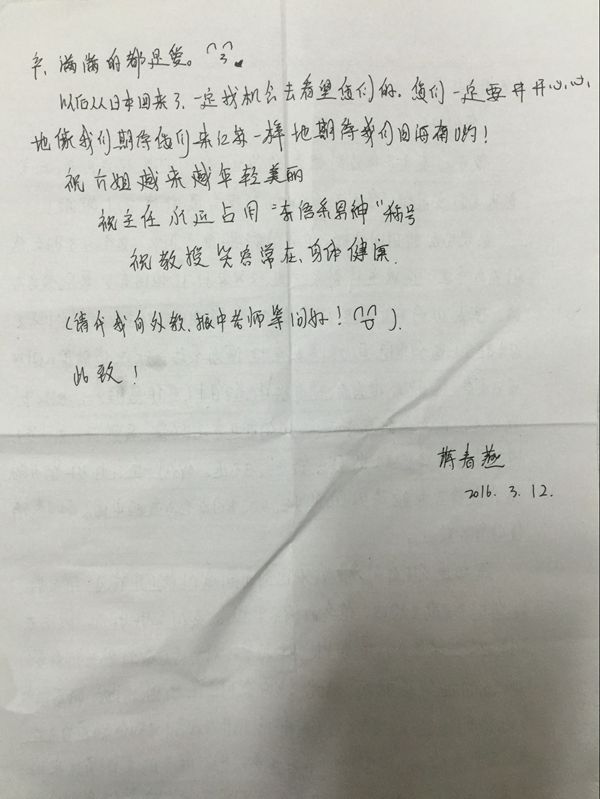 辛、满满的都是爱。
以后从日本回来了，一定找机会去看望您们的，您们一定要开开心心
地像我们期待您们来江苏一样地期待我们回海南哟！
祝六姐越来越年轻美丽
祝主任永远占用“东语系男神”称号
祝教授笑容常在、身体健康.
(请代我向外教、振中老师等问好！).
此致！
蒋春燕
2016. 3. 12.